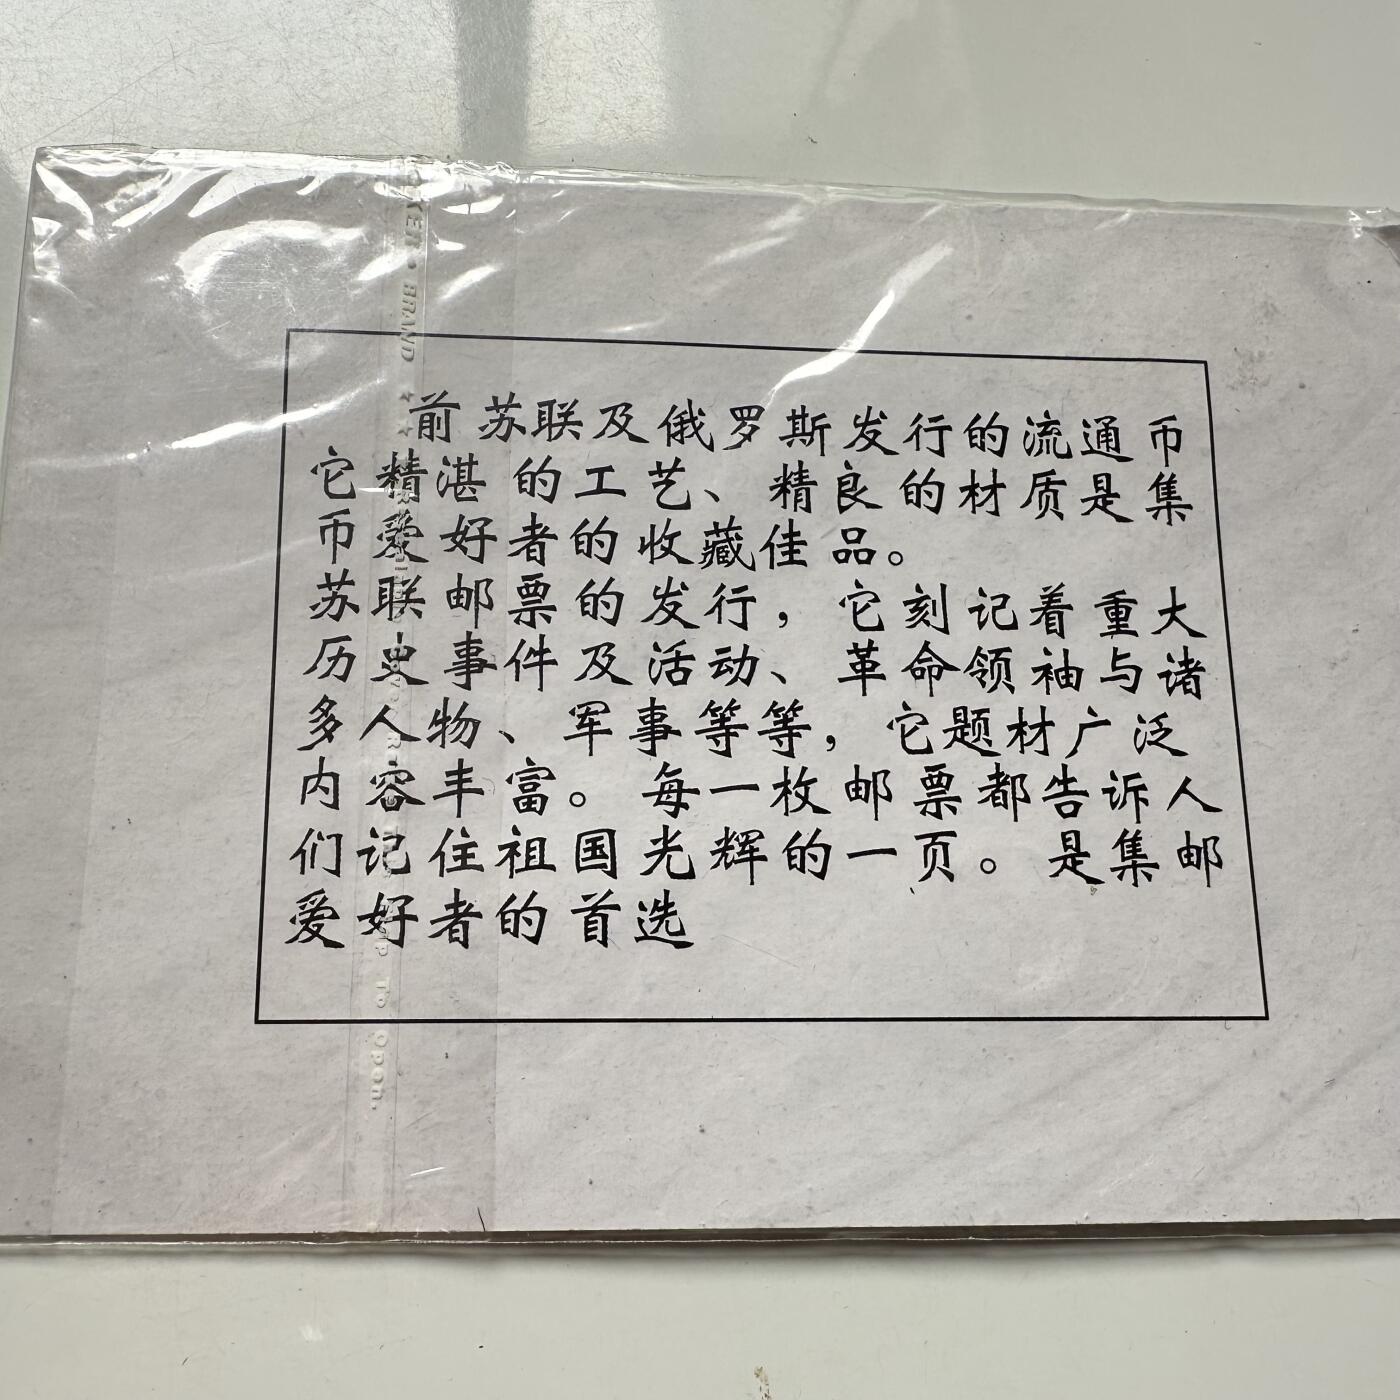 前苏联及俄罗斯发行的流通币
它精湛的工艺、精良的材质是集
币爱好者的收藏佳品。
苏联邮票的发行，它刻记着重大
历史事件及活动、革命领袖与诸
多人物、军事等等，它题材广泛
内容丰富。每一枚邮票都告诉人
们记住祖国光辉的一页。是集邮
爱好者的首选
BRAND
To Open.